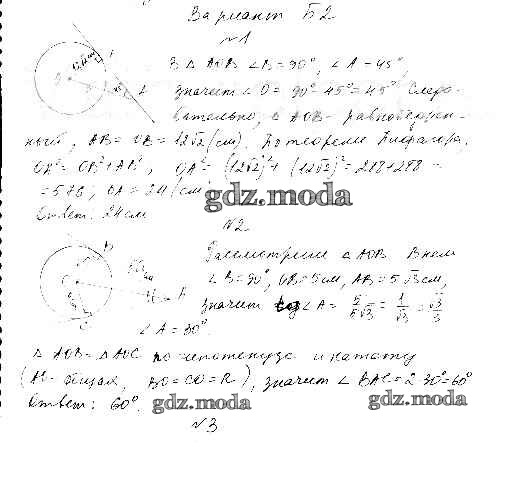 Вариант Б2
№1
В △ AOB ∠B = 90°, ∠A = 45°,
значит ∠O = 90° - 45° = 45°. Следо-
вательно, △ AOB - равнобедрен-
ный, AB = OB = 12√2 (см). По теореме Пифагора,
OA² = OB² + AB², OA² = (12√2)² + (12√2)² = 288 + 288 =
= 576; OA = 24 (см)
Ответ: 24 см
gdz.moda
№2
Рассмотрим △ AOB. В нем
∠B = 90°, OB = 5 см, AB = 5√3 см,
значит tg∠A = 5/5√3 = 1/√3 = √3/3
∠A = 30°.
△ AOB = △ AOC по гипотенузе и катету
(AO - общая, BO = CO = R), значит ∠BAC = 2·30° = 60°
Ответ: 60°.
gdz.moda
gdz.moda
№3